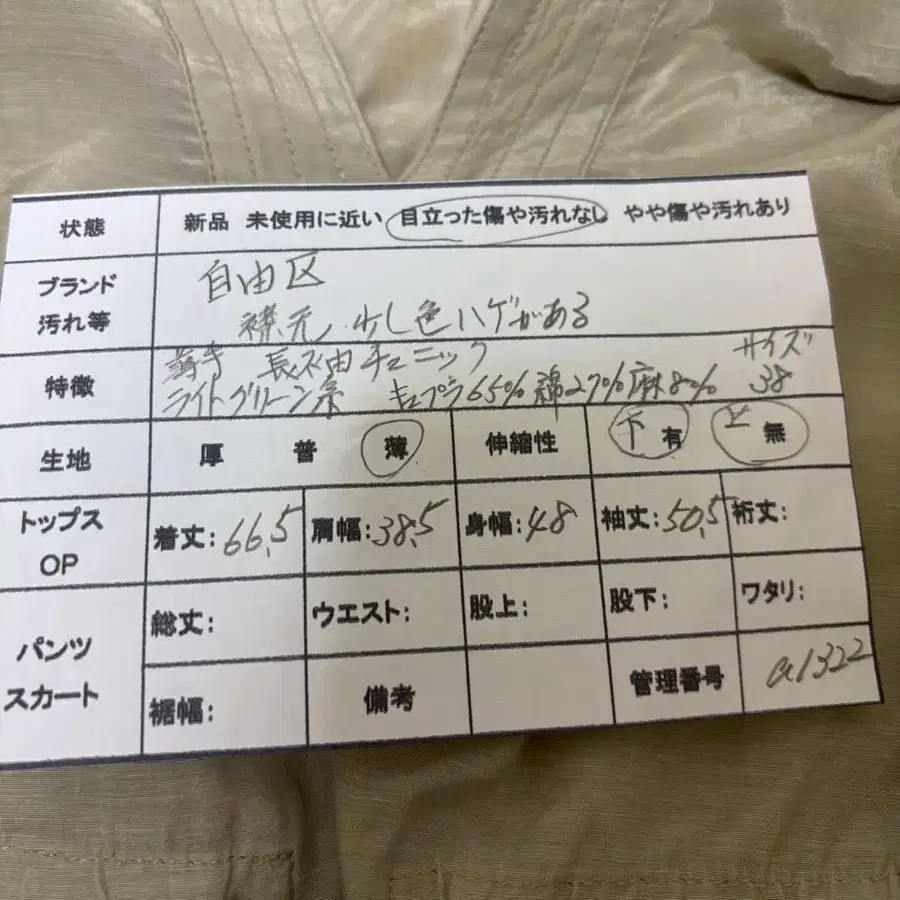 状態 新品 未使用に近い 目立った傷や汚れなし やや傷や汚れあり
ブランド 自由区
汚れ等 襟元 少し色ハゲがある
特徴 薄手 長袖チュニック サイズ
ライトグリーン系 キュプラ65% 綿27% 麻8% 38
生地 厚 普 薄 伸縮性 下 有 上 無
トップス OP 着丈:66,5 肩幅:38,5 身幅:48 袖丈:50,5 裄丈:
パンツ スカート 総丈: ウエスト: 股上: 股下: ワタリ:
裾幅: 備考 管理番号 a1322